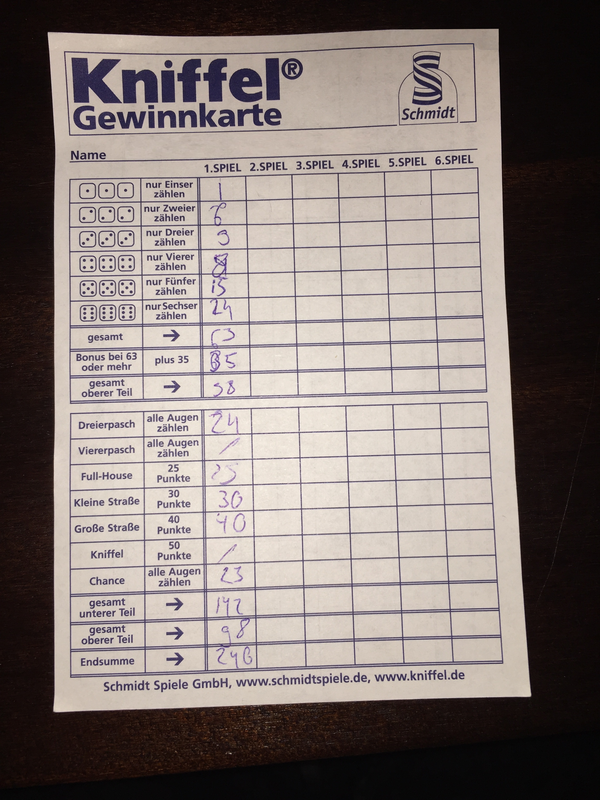 Kniffel®
Gewinnkarte
Schmidt
Name
1.SPIEL 2.SPIEL 3.SPIEL 4.SPIEL 5.SPIEL 6.SPIEL
nur Einser zählen 1
nur Zweier zählen 6
nur Dreier zählen 9
nur Vierer zählen 8
nur Fünfer zählen 15
nur Sechser zählen 24
gesamt → 63
Bonus bei 63 oder mehr plus 35 35
gesamt oberer Teil → 98
Dreierpasch alle Augen zählen 24
Viererpasch alle Augen zählen /
Full-House 25 Punkte 25
Kleine Straße 30 Punkte 30
Große Straße 40 Punkte 40
Kniffel 50 Punkte /
Chance alle Augen zählen 23
gesamt unterer Teil → 142
gesamt oberer Teil → 98
Endsumme → 240
Schmidt Spiele GmbH, www.schmidtspiele.de, www.kniffel.de